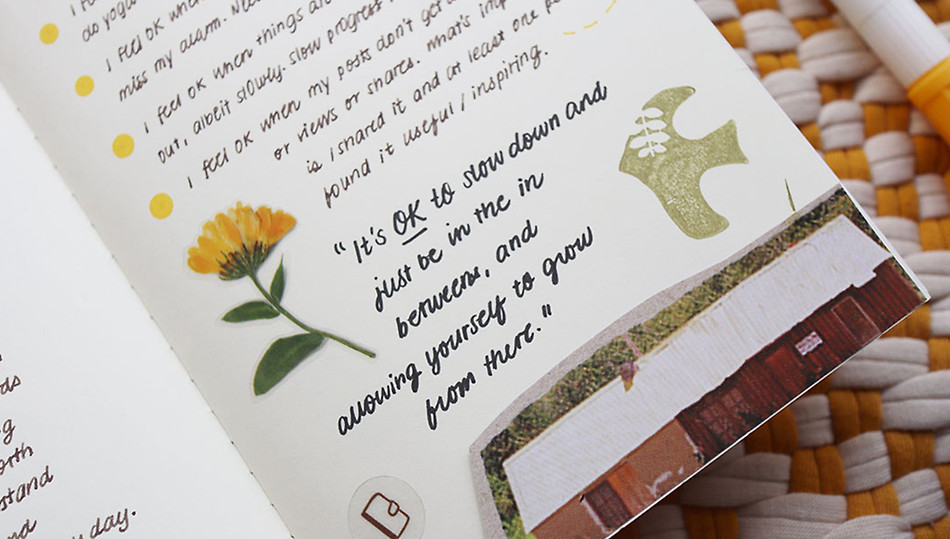 do yoga
I feel OK when
miss my alarm.
I feel OK when things are
out, albeit slowly. slow progress
I feel OK when my posts don't get
or views or shares. what's
is I shared it and at least one
found it useful / inspiring.
"It's OK to slow down and
just be in the in
betweens, and
allowing yourself to grow
from there."
day.